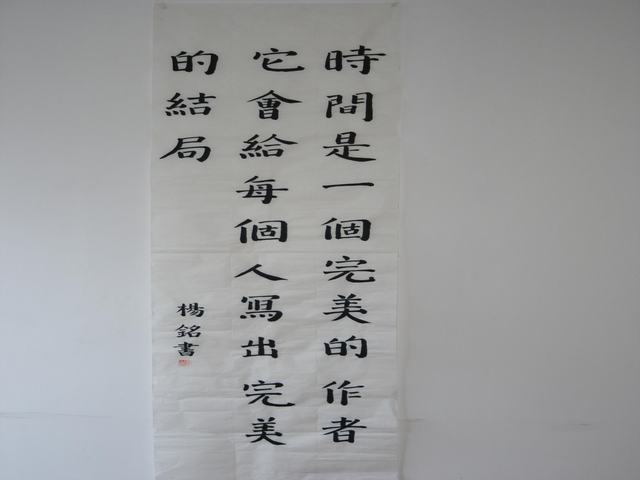 時間是一個完美的作者
它會給每個人寫出完美
的結局
楊銘書